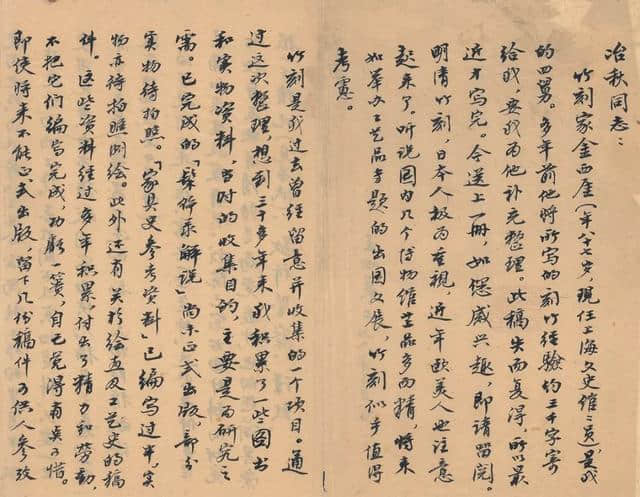 冶秋同志：
竹刻家金西厓（年八十七岁，现任上海文史馆馆员，是我
的四舅。多年前他将所写的刻竹经验约三千字寄
给我，要我为他补充整理。此稿失而复得，所以最
近才写完。今送上一册，如您感兴趣，即请留阅。
明清竹刻，日本人极为重视，近年欧美人也注意
起来了。听说国内几个博物馆藏品多而精，将来
如举办工艺品专题的出国文展，竹刻似乎值得
考虑。
竹刻是我过去曾经留意并收集的一个项目。通
过这次整理，想到三十多年来我积累了一些图书
和实物资料，当时的收集目的，主要是为研究之
需。已完成的「髹饰录解说」尚未正式出版，部分
实物待拍照。「家具史参考资料」已编写过半，实
物亦待拍照测绘。此外还有关于绘画及工艺史的稿
件。这些资料经过多年积累，付出了精力和劳动，
不把它们编写完成，功亏一篑，自己觉得有点可惜。
即使将来不能正式出版，留下几份稿件可供人参考